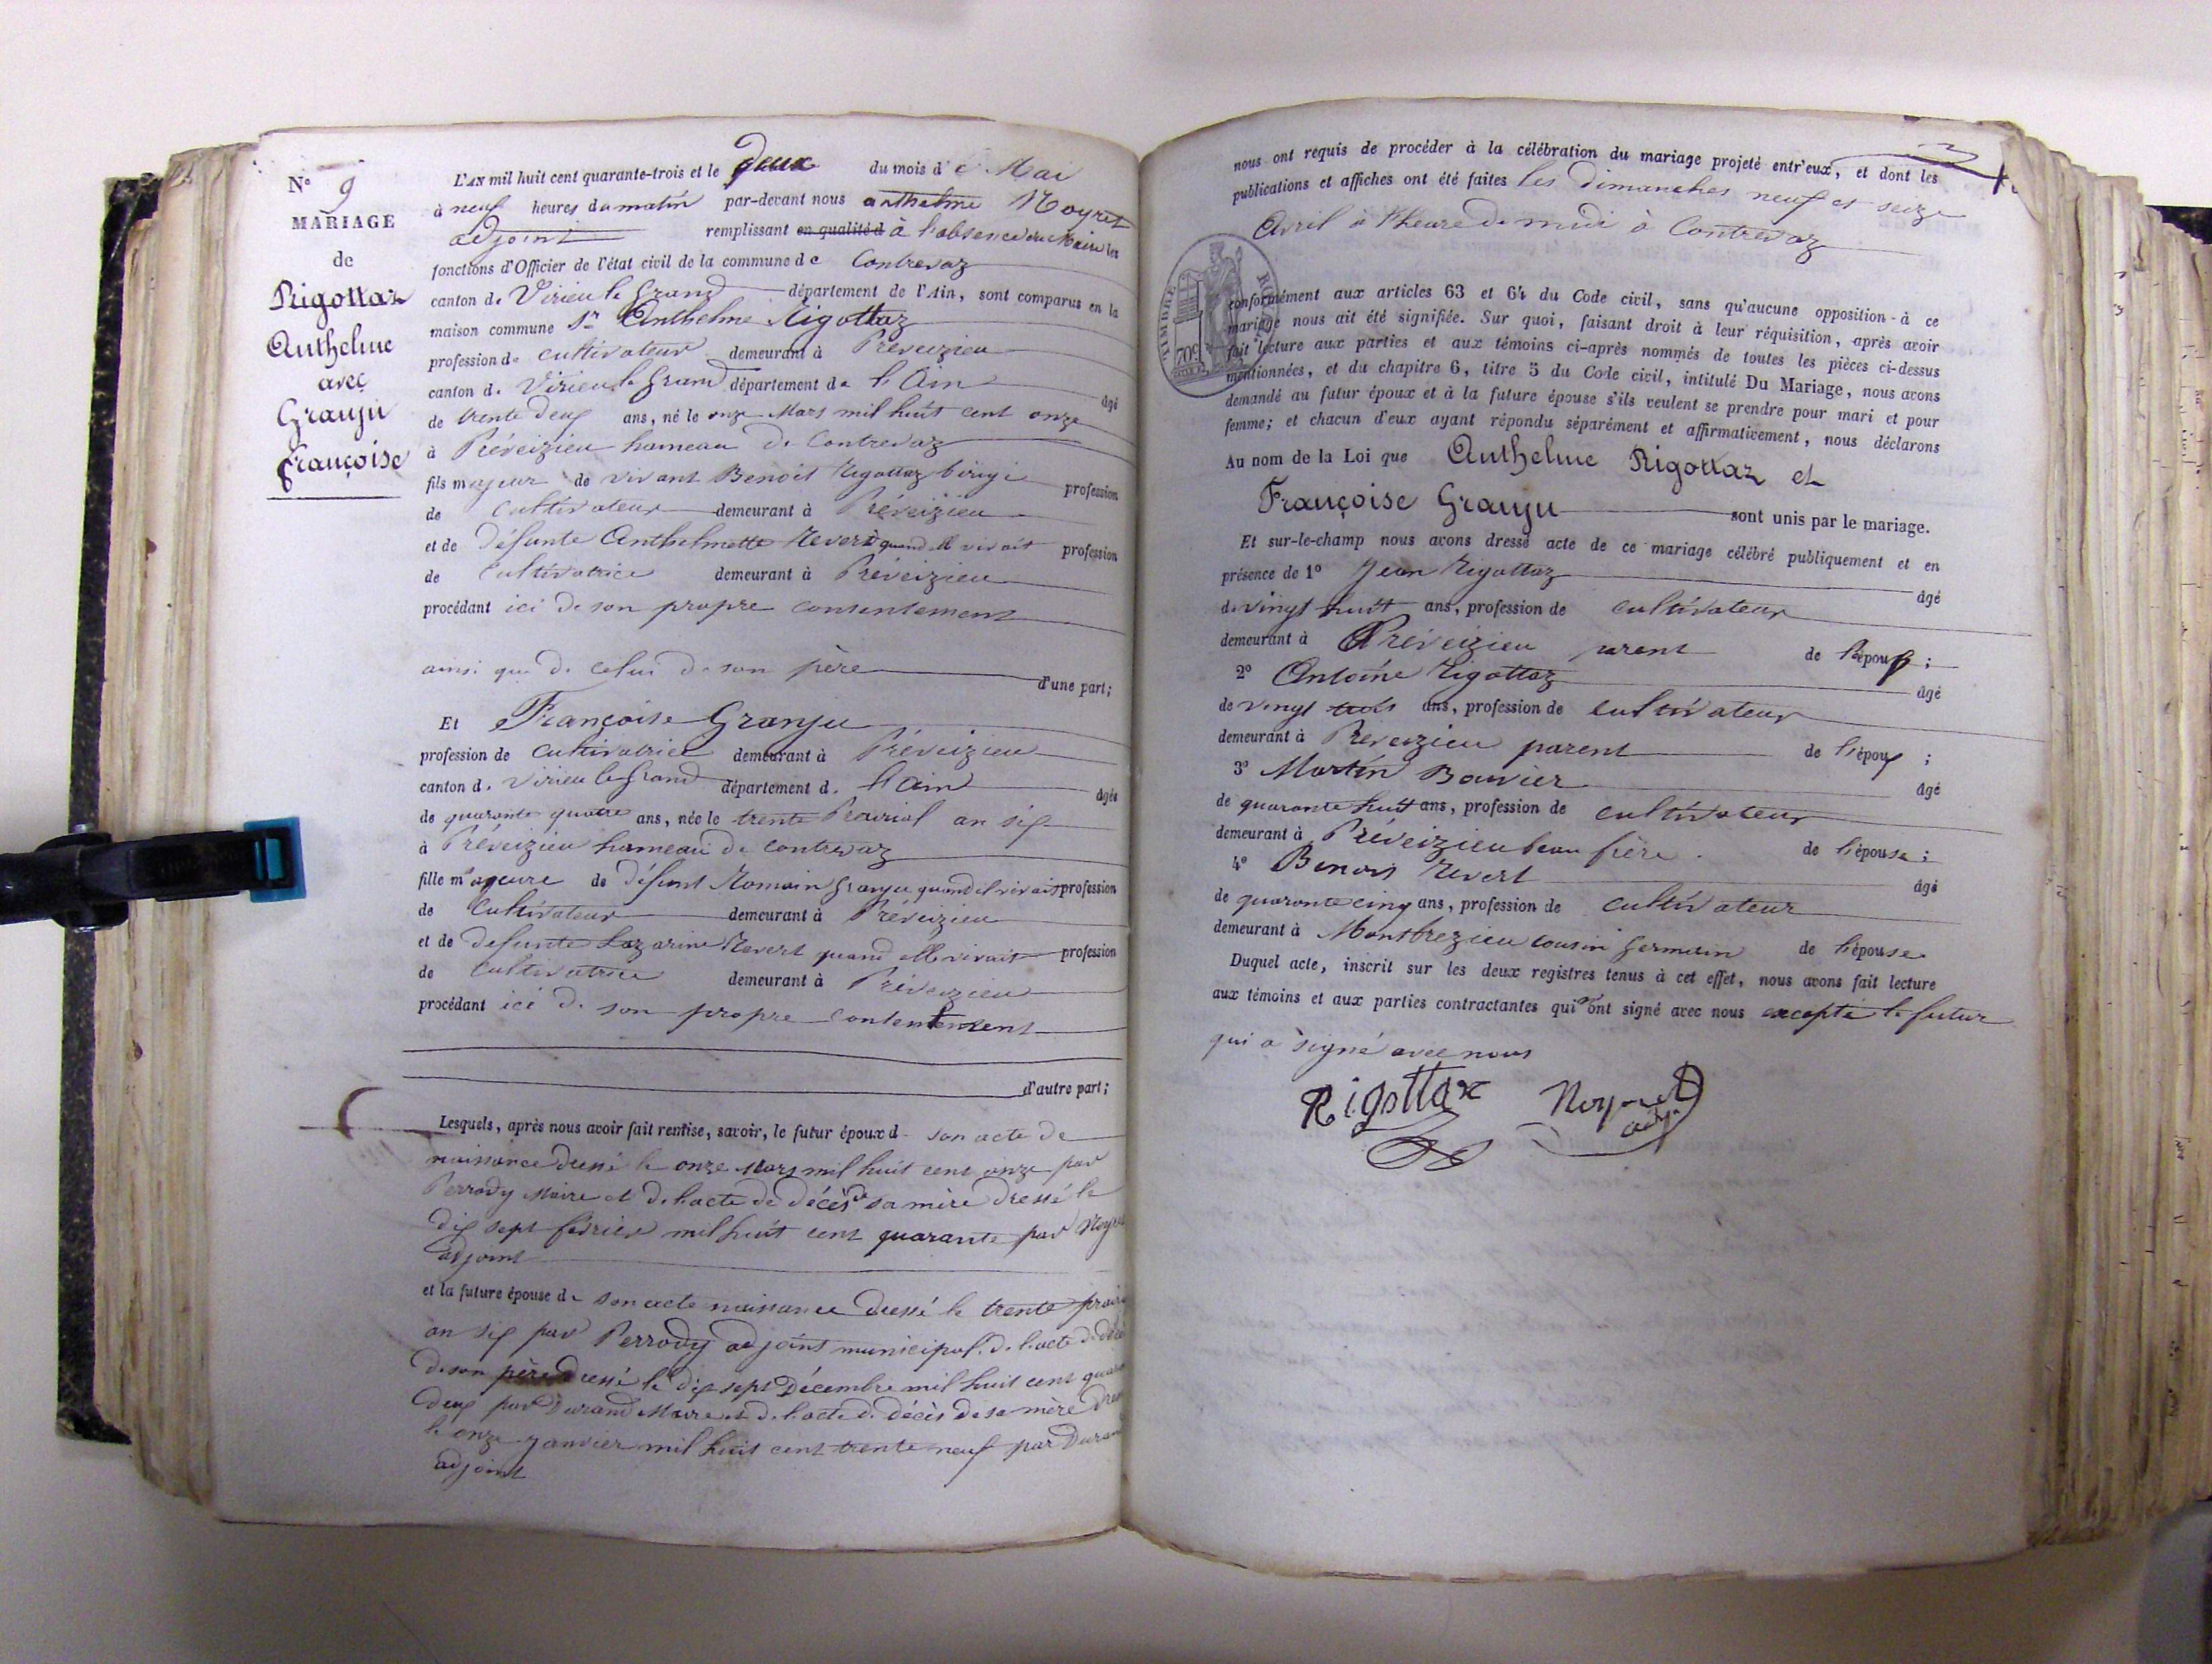 N° 9
MARIAGE
de
Rigottaz
Anthelme
avec
Granju
Françoise
L'AN mil huit cent quarante-trois et le deux du mois de Mai
à neuf heures du matin par-devant nous anthelme Noyret
adjoint remplissant en qualité d à l'absence du Maire les
fonctions d'Officier de l'état civil de la commune de Contrevoz
canton de Virieu le Grand département de l'Ain, sont comparus en la
maison commune Sr Anthelme Rigottaz
profession de cultivateur demeurant à Préveizieu
canton de Virieu le Grand département de l'Ain âgé
de trente deux ans, né le onze Mars mil huit cent onze
à Préveizieu hameau de Contrevoz
fils majeur de vivant Benoit Rigottaz profession
de Cultivateur demeurant à Préveizieu
et de défunte Anthelmette Revert quand elle vivait profession
de Cultivatrice demeurant à Préveizieu
procédant ici de son propre consentement
ainsi que de celui de son père d'une part;
Et Françoise Granju
profession de Cultivatrice demeurant à Préveizieu
canton d. Virieu le Grand département d. l'Ain âgée
de quarante quatre ans, née le trente Prairial an six
à Préveizieu hameau de contrevoz
fille majeure de défunt Romain Granju quand il vivait profession
de Cultivateur demeurant à Préveizieu
et de defunte Lazarine Revert quand elle vivait profession
de Cultivatrice demeurant à Préveizieu
procédant ici de son propre contentement
d'autre part;
Lesquels, après nous avoir fait remise, savoir, le futur époux d. son acte de
naissance dressé le onze Mars mil huit cent onze par
Perrody Maire et de l'acte de décès de sa mère dressé le
dix sept février mil huit cent quarante par Noyret
adjoint
et la future épouse de son acte naissance dressé le trente prairi
an six par Perrody adjoint municipal. de l'acte de décè
de son père dressé le dix sept Décembre mil huit cent quar
deux par Durand Maire et de l'acte de décès de sa mère dres
le onze janvier mil huit cent trente neuf par Duran
adjoint
nous ont requis de procéder à la célébration du mariage projeté entr'eux, et dont les
publications et affiches ont été faites les dimanches neuf et seize
Avril à l'heure de midi à Contrevoz
TIMBRE ROYAL
70c
conformément aux articles 63 et 64 du Code civil, sans qu'aucune opposition à ce
mariage nous ait été signifiée. Sur quoi, faisant droit à leur réquisition, après avoir
fait lecture aux parties et aux témoins ci-après nommés de toutes les pièces ci-dessus
mentionnées, et du chapitre 6, titre 5 du Code civil, intitulé Du Mariage, nous avons
demandé au futur époux et à la future épouse s'ils veulent se prendre pour mari et pour
femme; et chacun d'eux ayant répondu séparément et affirmativement, nous déclarons
Au nom de la Loi que Anthelme Rigottaz et
Françoise Granju sont unis par le mariage.
Et sur-le-champ nous avons dressé acte de ce mariage célébré publiquement et en
présence de 1° Jean Rigottaz âgé
de vingt huit ans, profession de cultivateur
demeurant à Préveizieu parent de l'époux;
2° Antoine Rigottaz âgé
de vingt trois ans, profession de cultivateur
demeurant à Préveizieu parent de l'époux;
3° Martin Bouvier âgé
de quarante huit ans, profession de cultivateur
demeurant à Préveizieu beau frère. de l'épouse;
4° Benoit Revert âgé
de quarante cinq ans, profession de cultivateur
demeurant à Montbrezieu cousin Germain de l'épouse
Duquel acte, inscrit sur les deux registres tenus à cet effet, nous avons fait lecture
aux témoins et aux parties contractantes qui n'ont signé avec nous excepté le futur
qui a signé avec nous
Rigottaz Noyret
adj.